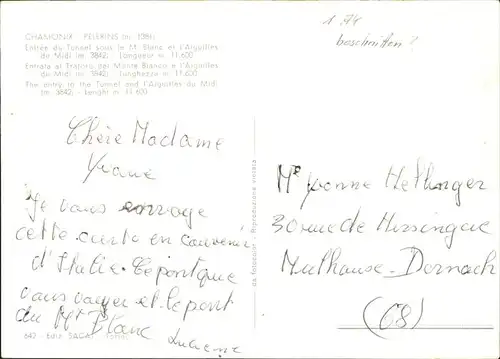 CHAMONIX - PELERINS (m. 1386)
Entrée du Tunnel sous le M. Blanc et l'Aiguilles
du Midi (m. 3842) - Longueur m. 11.600
Entrata al Traforo del Monte Bianco e l'Aiguilles
du Midi (m. 3842) - Lunghezza m. 11.600
The entry in the Tunnel and l'Aiguilles du Midi
(m. 3842) - Lenght m. 11.600
beschnitten?
Chère Madame
Yvane
Je vous envoye
cette carte en souvenir
d'Italie. Le pont que
vous voyer et le pont
du Mt Blanc Lucienne
642 - Ediz. SACAT - Torino
da fotocolor - Riproduzione vietata
Me Yvonne Hellinger
30 rue de Hirsingue
Mulhouse - Dornach
(68)